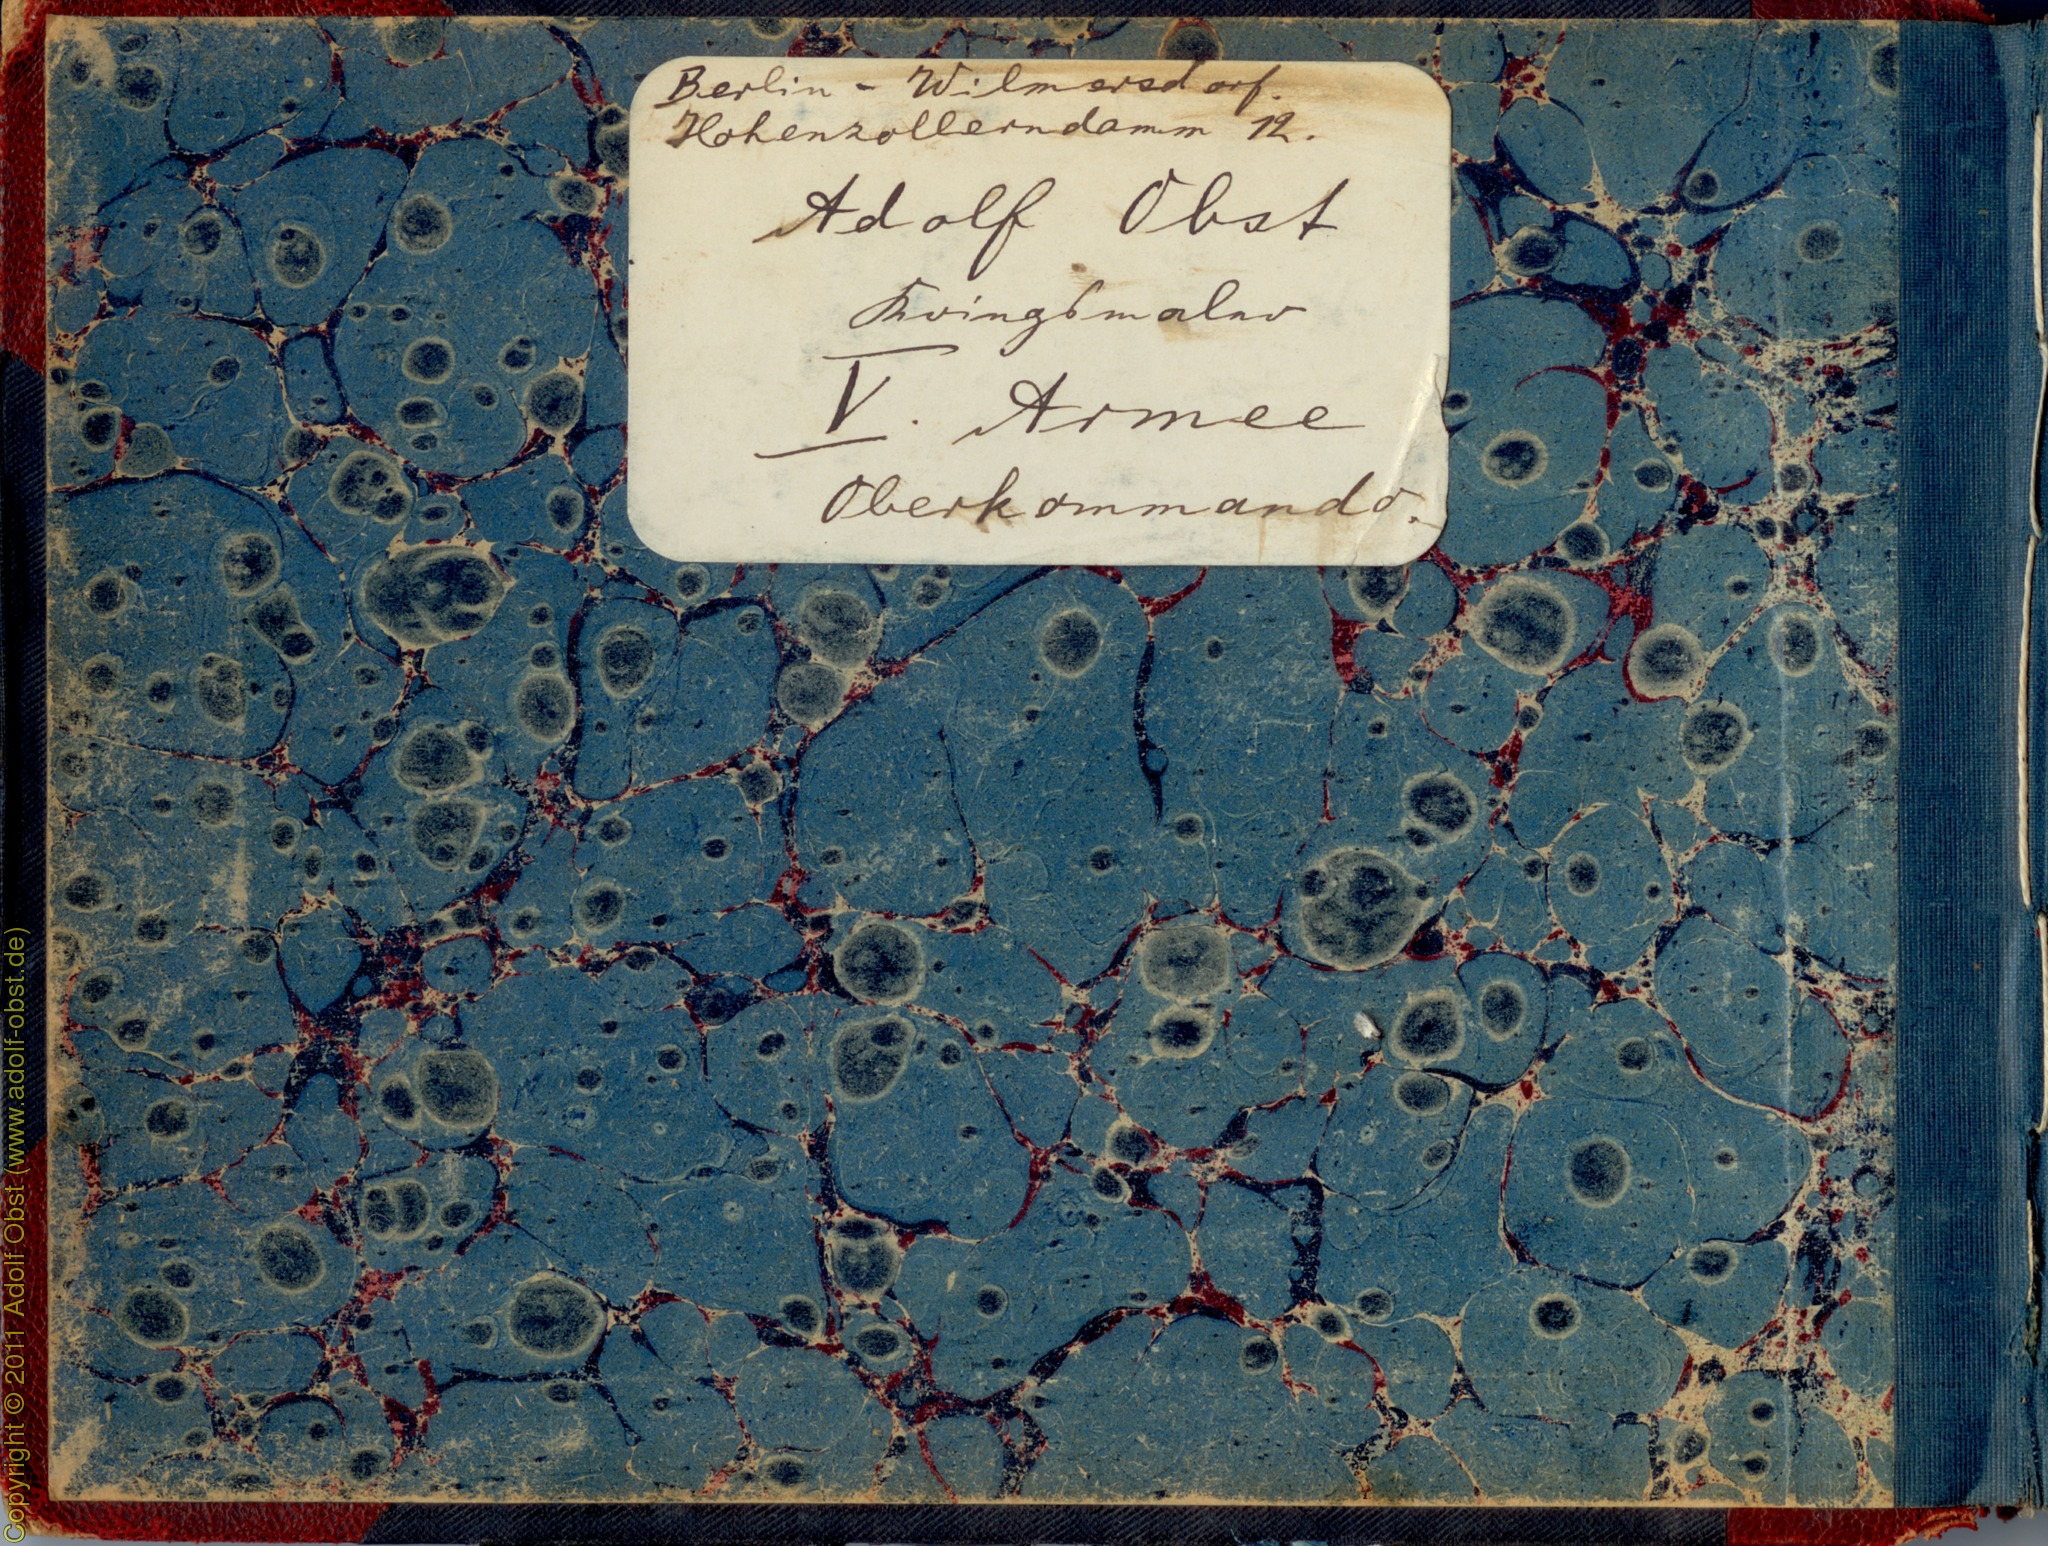 Berlin - Wilmersdorf.
Hohenzollerndamm 12.
Adolf Obst
Kriegsmaler
V. Armee
Oberkommando.
Copyright © 2011 Adolf Obst (www.adolf-obst.de)